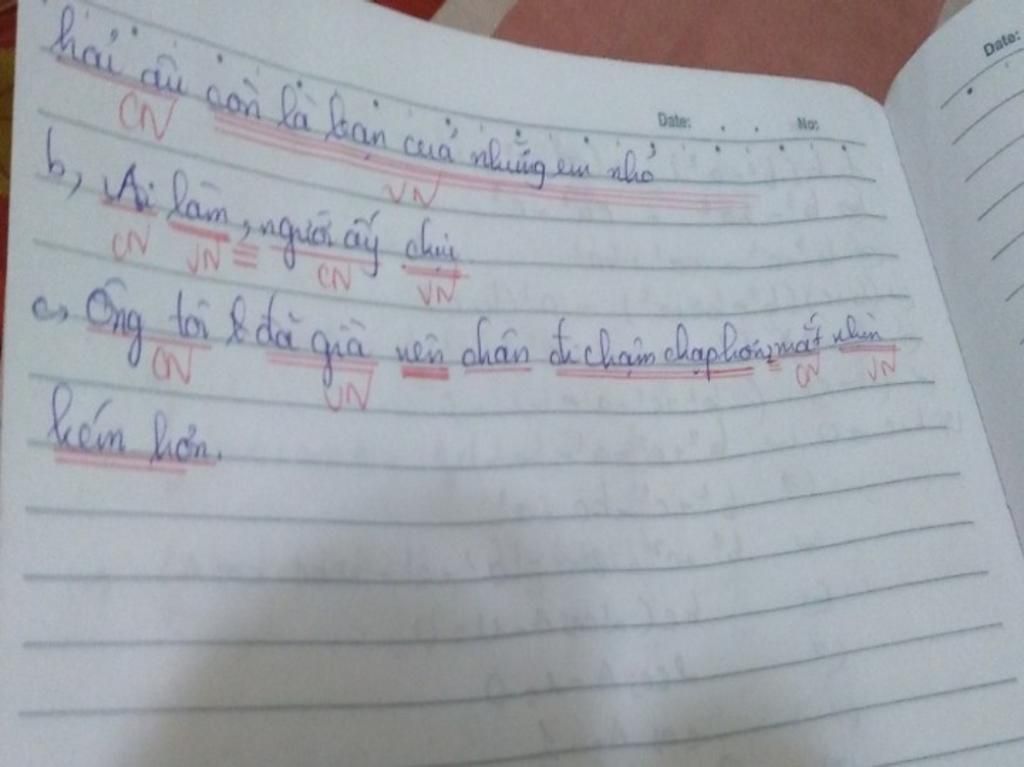 Date:
Date: No:
hải âu còn là bạn của những em nhỏ
CN VN
b, Ai làm, người ấy chịu
CN VN CN VN
c, Ông tôi đã già nên chân đi chậm chạp hơn, mắt nhìn
CN VN CN VN
kém hơn.